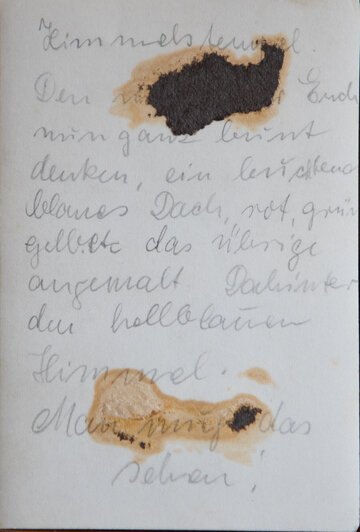 Himmelstempel.
Den Erde
nun ganz bunt
denken, ein leuchtend
blaues Dach, rot, grün
gelb etc das übrige
angemalt Dahinter
den hellblauen
Himmel.
Man muß das
sehen!